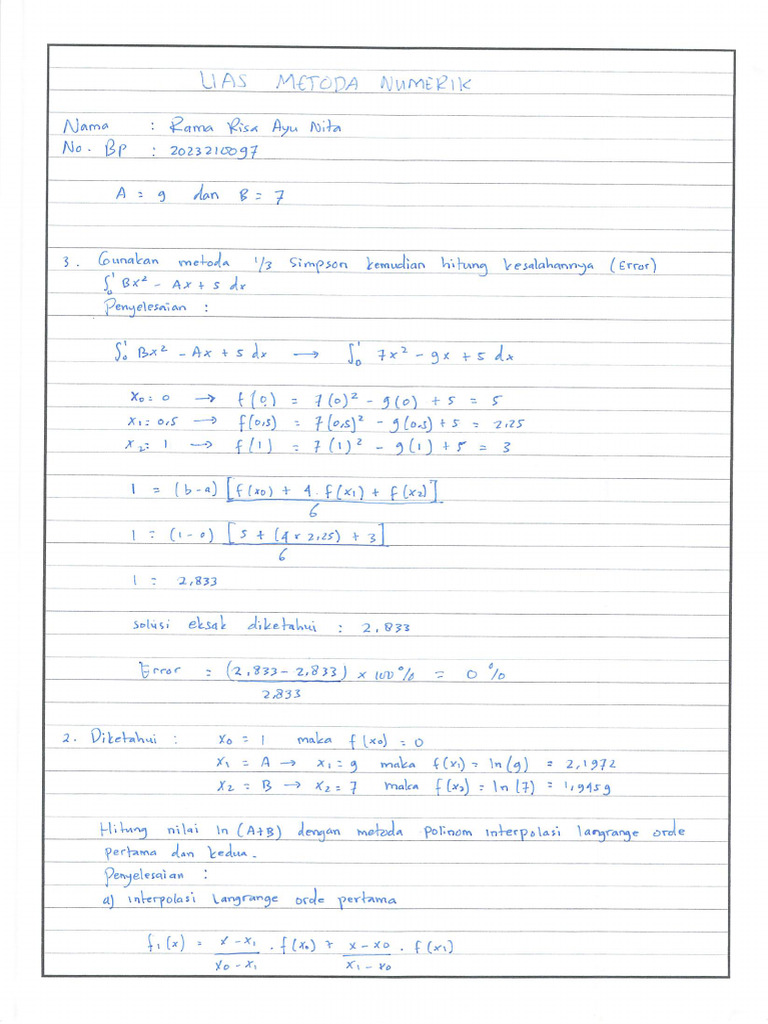 UAS METODA NUMERIK
Nama : Rama Risa Ayu Nita
No. BP : 2023210097
A = 9 dan B = 7
3. Gunakan metoda 1/3 Simpson kemudian hitung kesalahannya (Error)
∫₀¹ Bx² - Ax + 5 dx
Penyelesaian :
∫₀¹ Bx² - Ax + 5 dx → ∫₀¹ 7x² - 9x + 5 dx
x₀ = 0 → f(0) = 7(0)² - 9(0) + 5 = 5
x₁ = 0,5 → f(0,5) = 7(0,5)² - 9(0,5) + 5 = 2,25
x₂ = 1 → f(1) = 7(1)² - 9(1) + 5 = 3
I = (b-a) [f(x₀) + 4. f(x₁) + f(x₂)]
6
I = (1-0) [5 + (4 x 2,25) + 3]
6
I = 2,833
solusi eksak diketahui : 2,833
Error = (2,833 - 2,833) x 100% = 0%
2,833
2. Diketahui : x₀ = 1 maka f(x₀) = 0
x₁ = A → x₁ = 9 maka f(x₁) = ln(9) = 2,1972
x₂ = B → x₂ = 7 maka f(x₂) = ln(7) = 1,9459
Hitung nilai ln (A+B) dengan metoda polinom interpolasi langrange orde
pertama dan kedua.
Penyelesaian :
a) interpolasi Langrange orde pertama
f₁(x) = x - x₁ . f(x₀) + x - x₀ . f(x₁)
x₀ - x₁ x₁ - x₀